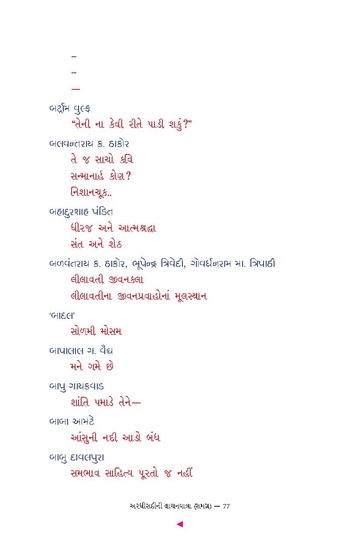 –
–
—
બર્ટ્રામ વુલ્ફ
“તેની ના કેવી રીતે પાડી શકું?”
બલવન્તરાય ક. ઠાકોર
તે જ સાચો કવિ
સન્માનાર્હ કોણ?
નિશાનચૂક..
બહાદુરશાહ પંડિત
ધીરજ અને આત્મશ્રદ્ધા
સંત અને શેઠ
બળવંતરાય ક. ઠાકોર, ભૂપેન્દ્ર ત્રિવેદી, ગોવર્ધનરામ મા. ત્રિપાઠી
લીલાવતી જીવનકલા
લીલાવતીના જીવનપ્રવાહોનાં મૂલસ્થાન
‘બાદલ’
સોળમી મોસમ
બાપાલાલ ગ. વૈદ્ય
મને ગમે છે
બાપુ ગાયકવાડ
શાંતિ પમાડે તેને—
બાબા આમટે
આંસુની નદી આડો બંધ
બાબુ દાવલપુરા
સમભાવ સાહિત્ય પૂરતો જ નહીં
અરધીસદીની વાચનયાત્રા (સમગ્ર) — 77